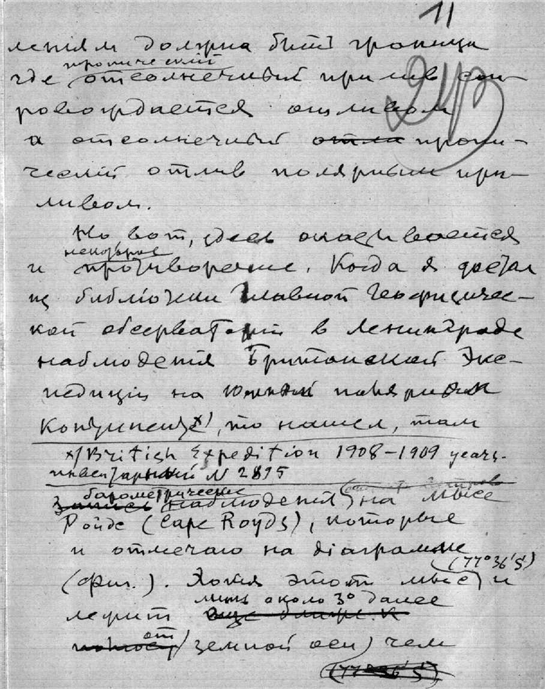 11
лениям должна быть граница
тропический
где отсолнечный прилив соп-
ровождается отливом
а отсолнечный отли тропи-
ческий отлив полярным при-
ливом.
Но вот, здесь оказывается
некоторое
и противоречие. Когда я достал
из библіотеки Главной Геофизичес-
кой обсерваторіи в Ленинграде
наблюдения Британской Экс-
педиціи на южный полярный
Континент x), то нашел, там
x) British Expedition 1908-1909 years.
инвентарный N 2895
барометрические
запись наблюдения на мысе
Ройдс (Cape Royds), которые
и отмечаю на діаграмме
(77°36'S)
(фиг.). Хотя этот мыс и
лишь около 3° далее
лежит еще ближе к
от
полюсу земной оси, чем
(77°36'S)